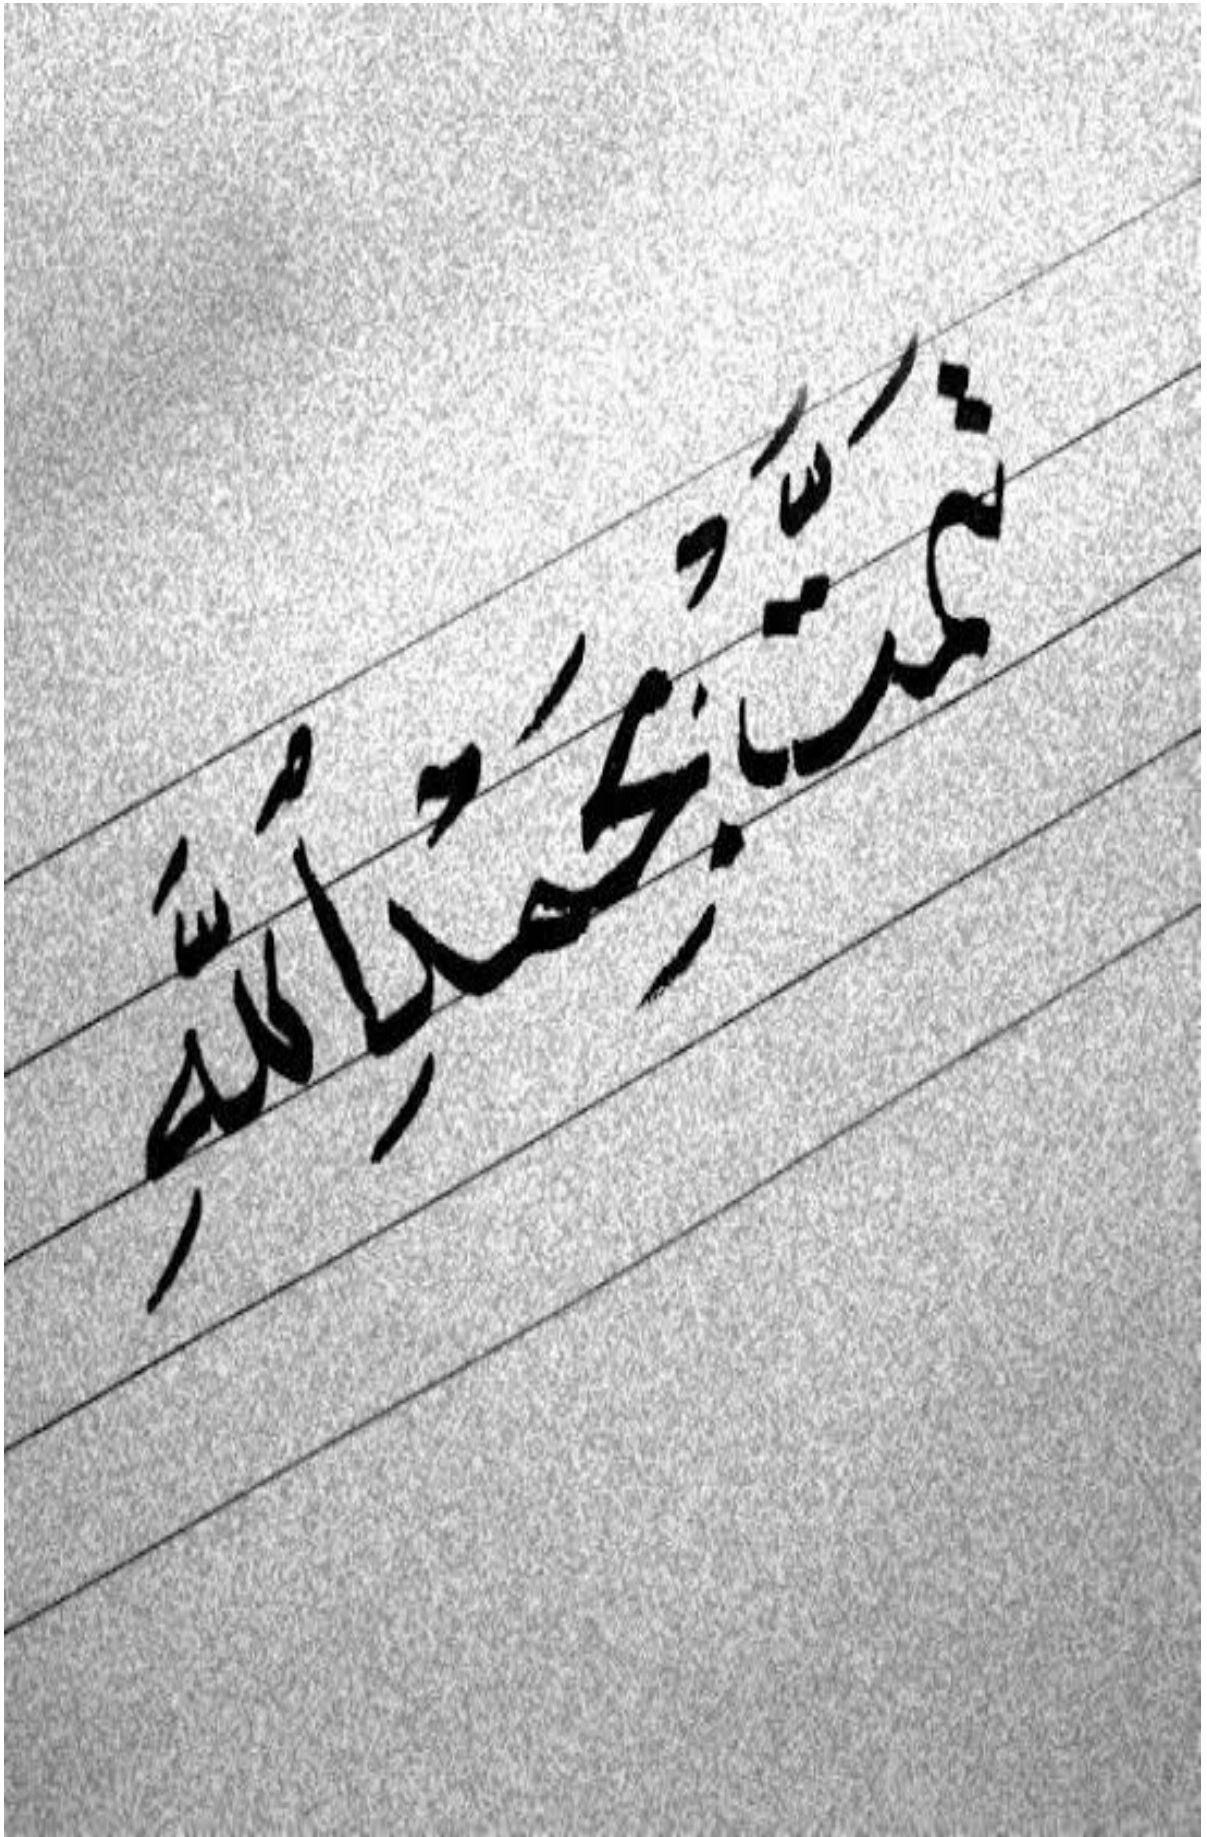 تَمَّتْ بِحَمْدِ اللَّهِ